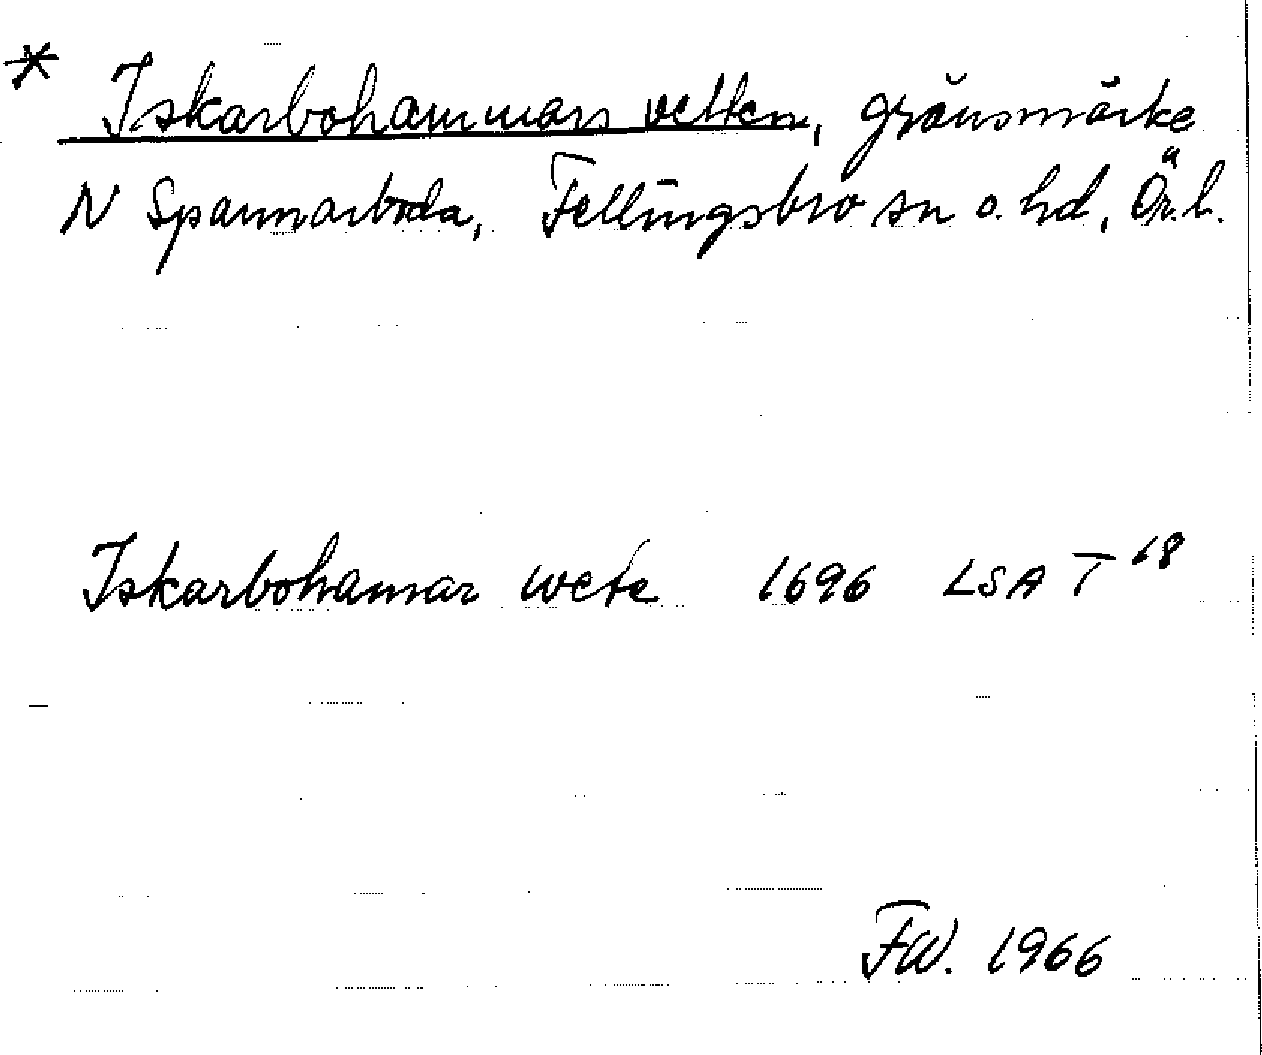 * Iskarbohammars vetten, gränsmärke
N Spannarboda, Fellingsbro sn o. hd, Ör. l.
Iskarbohamar wete 1696 LSA T 18
FW. 1966